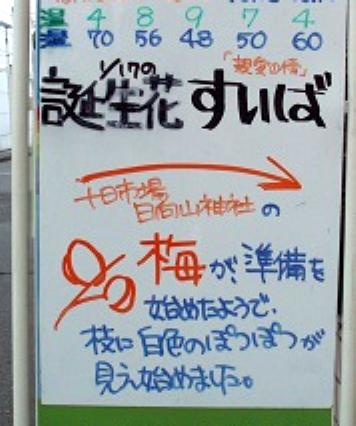 温 4 8 9 7 4
湿 70 56 48 50 60
1/17の
「親愛の情」
誕生花 すいば
十日市場
日向山神社の
梅が、準備を
始めたようで、
枝に白色のぽつぽつが
見え始めました。